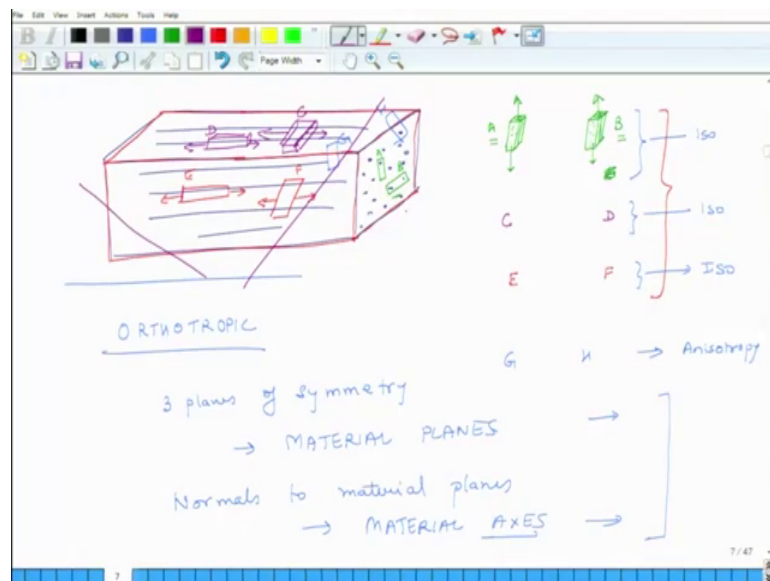 File Edit View Insert Actions Tools Help
B I
Page Width
D C
G F
A
B
A B Iso
C D Iso
E F ISO
G H → Anisotropy
ORTHOTROPIC
3 planes of symmetry
→ MATERIAL PLANES →
Normals to material planes
→ MATERIAL AXES →
7 / 47
7